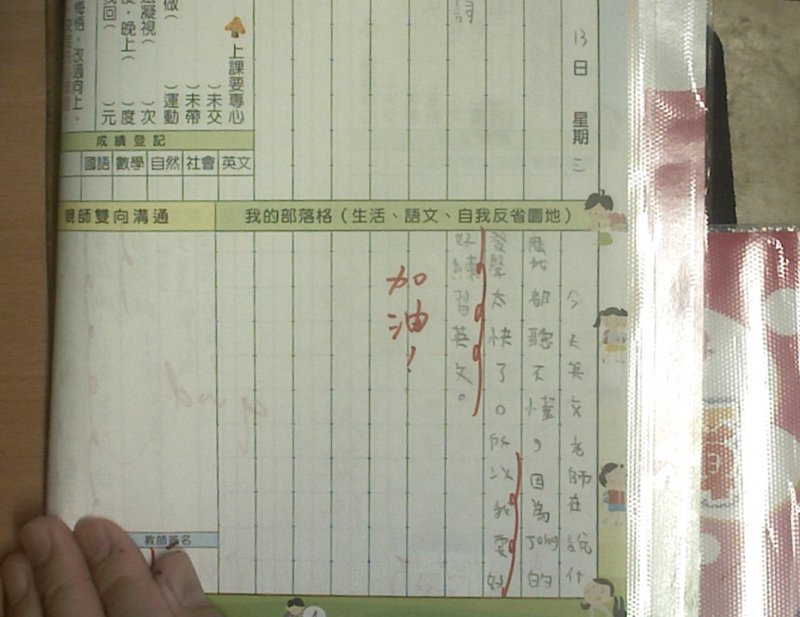 13日 星期三
詞
上課要專心
）未交
）未帶
做（ ）運動
凝視（ ）次
度，晚上（ ）度
回（ ）元
改過向上、
成績登記
國語 數學 自然 社會 英文
我的部落格（生活、語文、自我反省園地）
今天英文老師在說什
麼我都聽不懂，因為John的
發聲太快了。所以我要好
好練習英文。
加油！
親師雙向溝通
教師簽名